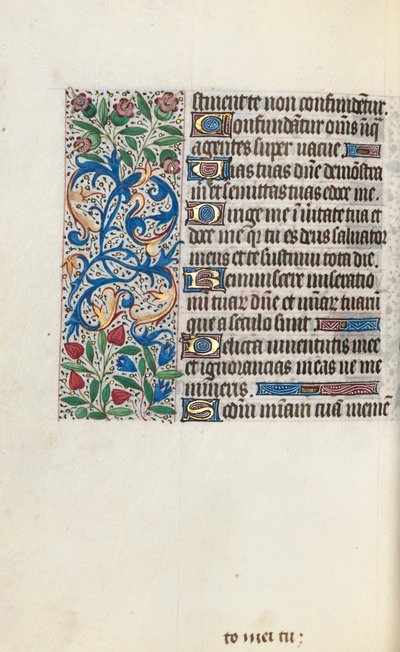 stinent te non confundētur.
Confundantur om̄s iniq̄
agentes super vacue.
Uias tuas dn̄e demōstra
m̄ et semittas tuas edoce me.
Dirige me ī ūitate tua et
doce me qr̄ tu es deus saluator
meus et te sustinui tota die.
Reminiscere miseratio
num tuar̄ dn̄e et mīar̄ tuarū
que a seculo sunt
Delicta iuuentutis mee
et ignorancias meas ne me
mineris.
Scdm̄ mīam tuā memē
to mei tu: